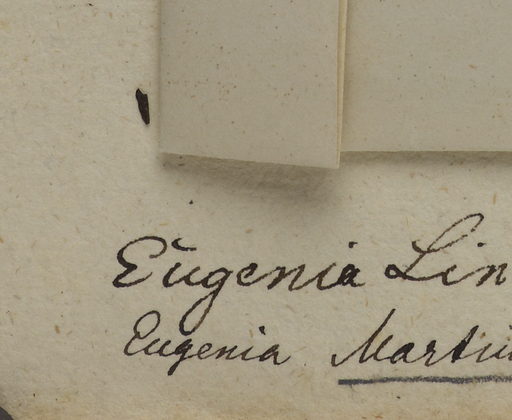 Eugenia Lin
Eugenia Martiu